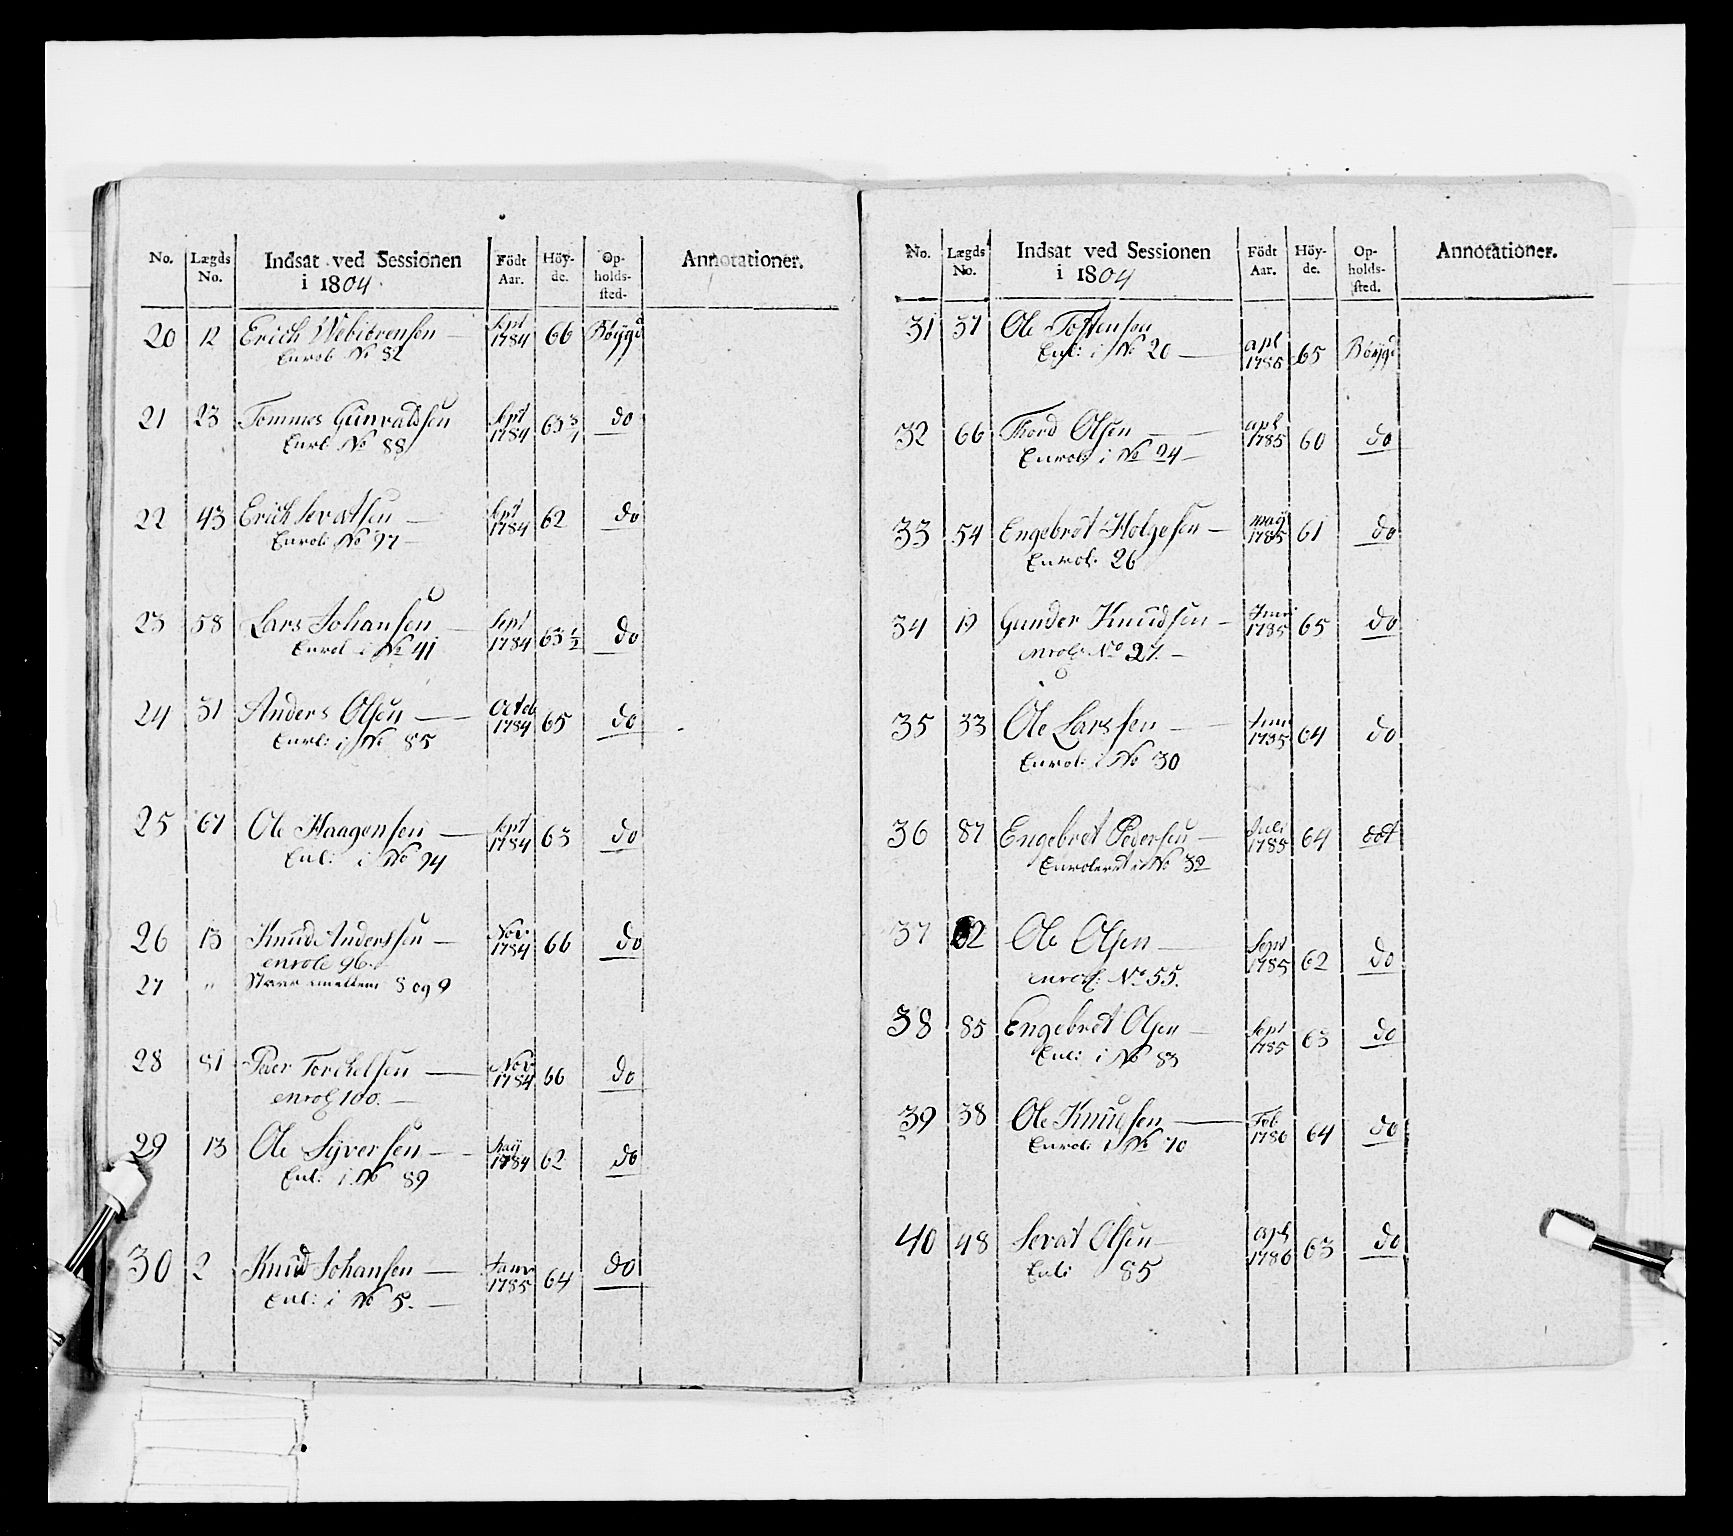 No. Lægds No. Indsat ved Sessionen i 1804. Födt Aar. Höyde. Opholdssted. Annotationer.
20 12 Erich Sept 1784 66 Böiygd
Enrol No 82
21 23 Tommes Gunvaldsen Sept 1784 63 3/4 do
Enrl No 88
22 43 Erich Sevatsen Sept 1784 62 do
Enrol: No 97
23 58 Lars Johansen Sept 1784 63 1/2 do
Enrol i No 41
24 31 Anders Olsen Octob 1784 65 do
Enrl: i No 85
25 67 Ole Haagensen Sept 1784 63 do
Enl: i No 94
26 13 Knud Anderssen Nov. 1784 66 do
enrole 96.
27 " Staar imellem 8 og 9
28 81 Peer Torchelsen Nov 1784 66 do
enrol 100.
29 13 Ole Syversen May 1784 62 do
Enl: i No 89
30 2 Knud Johansen Janv 1785 64 do
Enl: i No 5.
No. Lægds No. Indsat ved Sessionen i 1804 Födt Aar. Höyde. Opholdssted. Annotationer.
31 37 Ole Tostensen apl 1785 65 Böiygd
Enl: i No 20
32 66 Thord Olsen apl 1785 60 do
Enrol: i No 24
33 54 Engebret Holgesen may 1785 61 do
Enrol: 26
34 19 Gunder Knudsen Juni 1785 65 do
enrol: No 27.
35 33 Ole Larssen Juni 1785 64 do
Enrol: i No 30
36 87 Engebret Pedersen Juli 1785 64 dot
Enroleret i No 32
37 62 Ole Olsen Sept 1785 62 do
enrol: No 55.
38 85 Engebret Olsen Sept 1785 63 do
Enl: i No 83
39 38 Ole Knudsen Feb 1786 64 do
Enrol: i No 70
40 48 Sevat Olsen apl 1786 63 do
Enl: 85